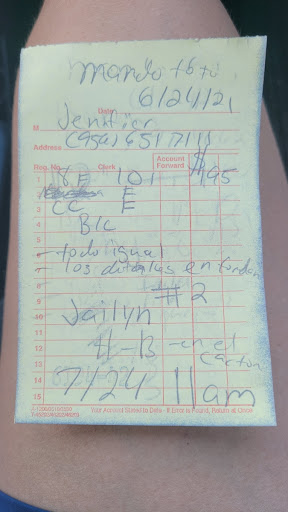 Mando foto
Date 6/24/21
M Jennifer
Address (956) 651 7111
Reg. No. Clerk Account Forward
1 E 101 $95
2 E
3 CC E
4 BIC
5
6 - todo igual
7 - los detalles en fondan
8
9 #2
10 Jailyn
11
12 #-13 - en el carton
13
14 7/24 11am
15
Your Account Stated to Date - If Error is Found, Return at Once